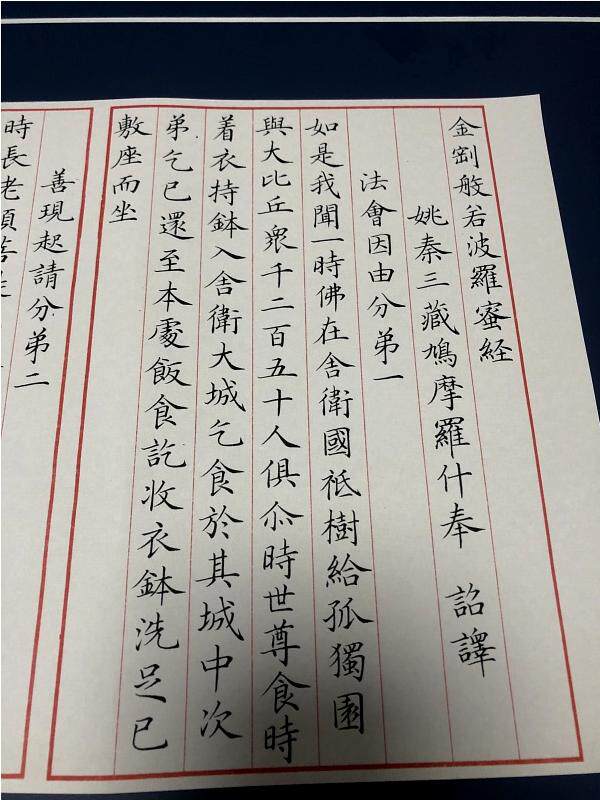 金剛般若波羅蜜経
姚秦三藏鳩摩羅什奉 詔譯
法會因由分弟一
如是我聞一時佛在舍衛國祗樹給孤獨園
與大比丘衆千二百五十人俱尒時世尊食時
着衣持鉢入舍衛大城乞食於其城中次
弟乞已還至本處飯食訖收衣鉢洗足已
敷座而坐
善現起請分弟二
時長老須菩